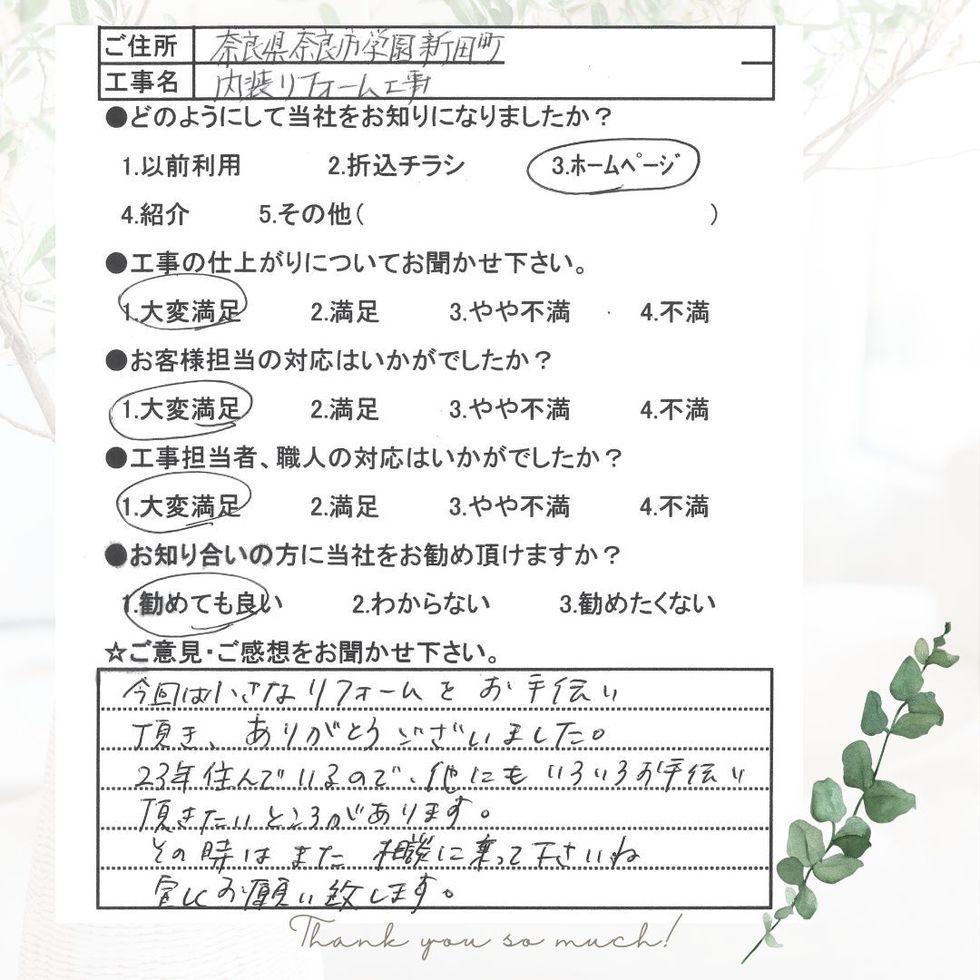 ご住所 奈良県奈良市学園新田町
工事名 内装リフォーム工事
●どのようにして当社をお知りになりましたか？
1.以前利用 2.折込チラシ 3.ホームページ
4.紹介 5.その他( )
●工事の仕上がりについてお聞かせ下さい。
1.大変満足 2.満足 3.やや不満 4.不満
●お客様担当の対応はいかがでしたか？
1.大変満足 2.満足 3.やや不満 4.不満
●工事担当者、職人の対応はいかがでしたか？
1.大変満足 2.満足 3.やや不満 4.不満
●お知り合いの方に当社をお勧め頂けますか？
1.勧めても良い 2.わからない 3.勧めたくない
☆ご意見・ご感想をお聞かせ下さい。
今回は小さなリフォームをお手伝い
頂き、ありがとうございました。
23年住んでいるので、他にもいろいろお手伝い
頂きたいところがあります。
その時はまた相談に乗って下さいね
宜しくお願い致します。
Thank you so much!